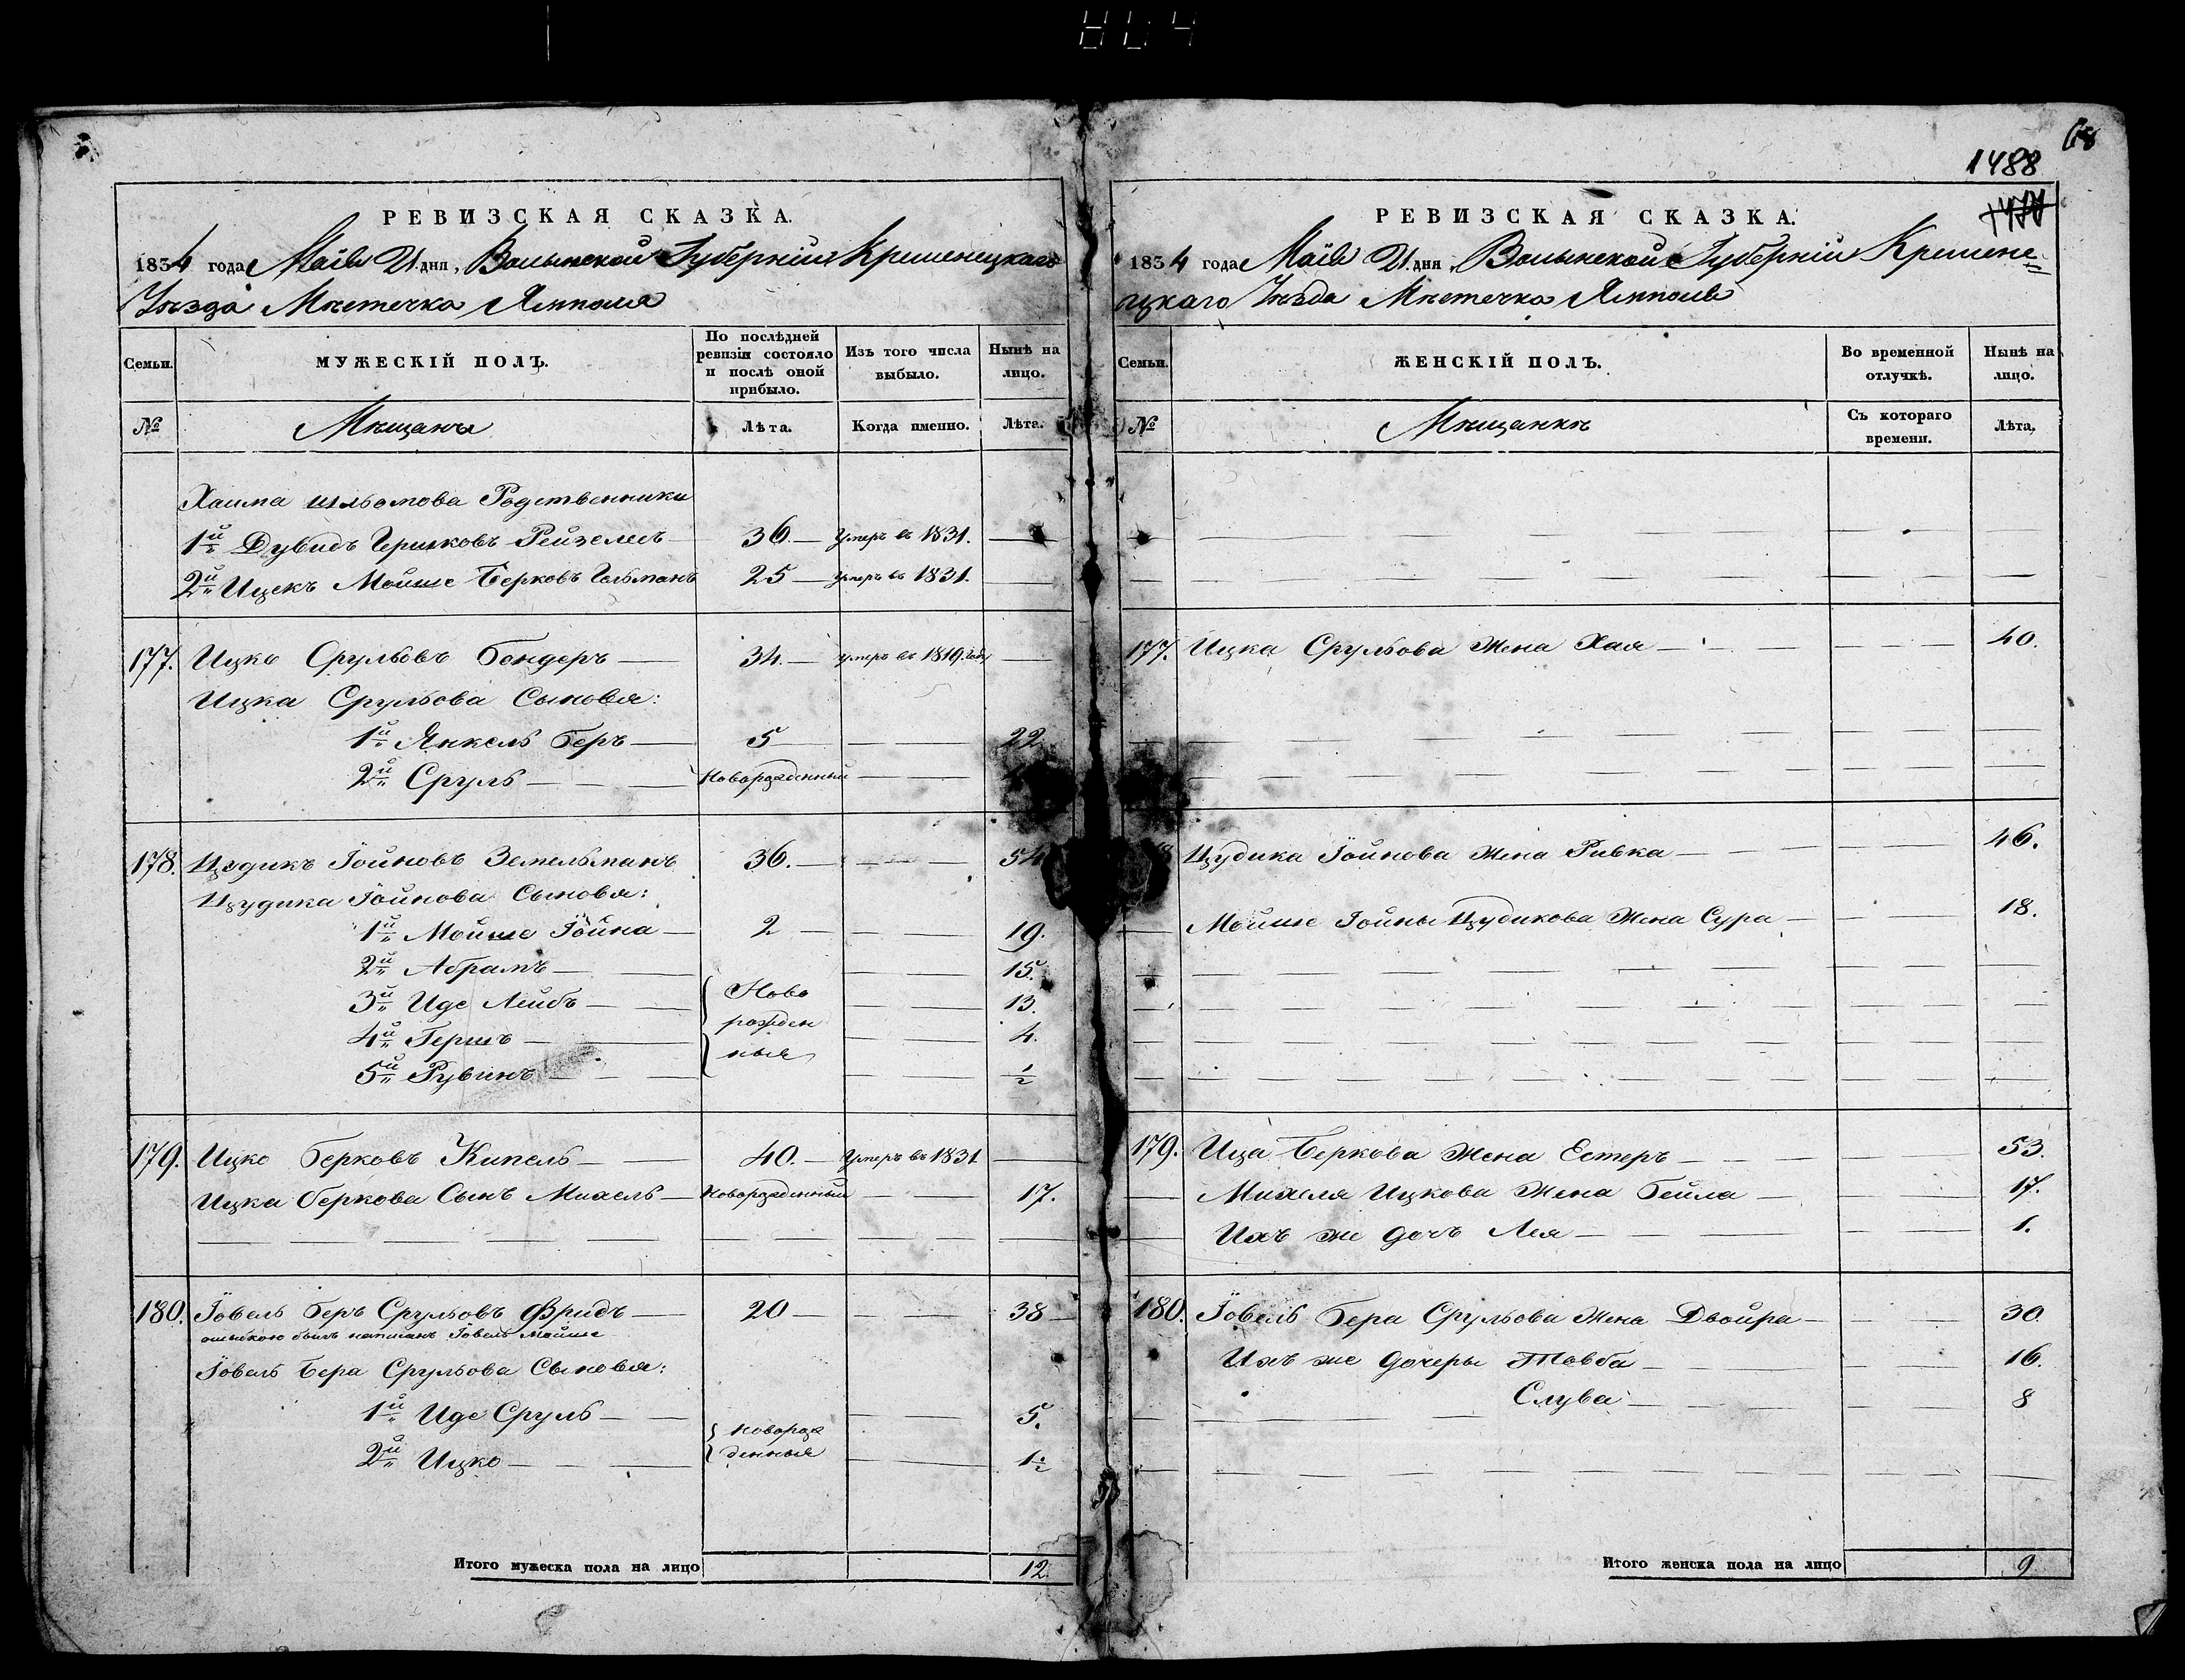 1488
68
РЕВИЗСКАЯ СКАЗКА.
1834 года Маія 21 дня, Волынской Губерніи Кременецкаго
Уѣзда Мѣстечка Ямполя
Семьи.
МУЖЕСКІЙ ПОЛЪ.
По послѣдней ревизіи состояло и послѣ оной прибыло.
Изъ того числа выбыло.
Нынѣ на лицо.
№
Мѣщане
Лѣта.
Когда именно.
Лѣта.
Хаима Родственники
1й Дувидъ Гершковъ Рейзелесъ 36. умеръ въ 1831.
2й Ицекъ Мойше Берковъ Гельманъ 25 умеръ въ 1831.
177. Ицко Срульовъ Бендеръ 34. умеръ въ 1819. году
Ицка Срульова Сыновья:
1й Янкель Беръ 5 22
2й Сруль Новорожденный
178. Цудикъ Іойновъ Земельманъ 36. 54
Цудика Іойнова Сыновья:
1й Мойше Іойна 2 19.
2й Абрамъ 15.
3й Иде Лейбъ Ново 13.
4й Гершъ рожден 4.
5й Рувинъ ные ½
179. Ицко Берковъ Кипель 40. Умеръ въ 1831
Ицка Беркова Сынъ Михель Новорожденный 17.
180. Іовель Беръ Срульовъ Фридъ 20 38
ошибкою былъ написанъ Іовель Мойше
Іовель Бера Срульова Сыновья:
1й Иде Сруль новорож 5.
2й Ицко денные 1½
Итого мужеска пола на лицо 12.
РЕВИЗСКАЯ СКАЗКА.
1834 года Маія 21 дня, Волынской Губерніи Кремене=
цкаго Уѣзда Мѣстечка Ямполя
Семьи.
ЖЕНСКІЙ ПОЛЪ.
Во временной отлучкѣ.
Нынѣ на лицо.
№
Мѣщанки
Съ котораго времени.
Лѣта.
177. Ицка Срульова Жена Хая 40.
Цудика Іойнова Жена Ривка 46.
Мойше Іойны Цудикова Жена Сура 18.
179. Ица Беркова Жена Естеръ 53.
Михеля Ицкова Жена Бейла 17.
Ихъ же дочь Лея 1.
180. Іовель Бера Срульова Жена Двойра 30
Ихъ же дочеры Товба 16.
Слува 8
Итого женска пола на лицо 9